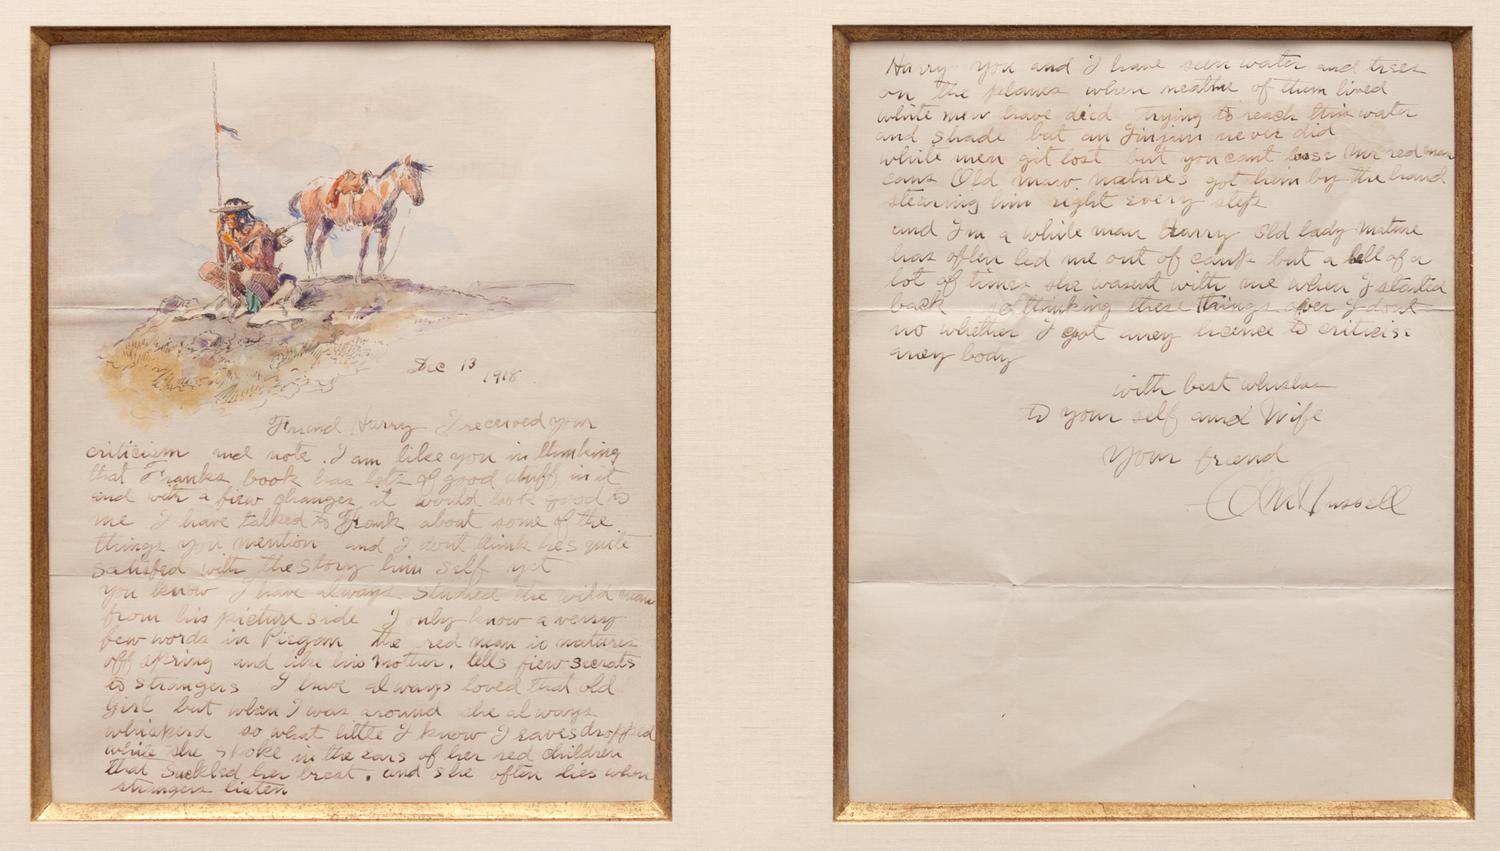 Dec 13
1918.
Friend Harry I received your
criticism and note. I am like you in thinking
that Franks book has lots of good stuff in it
and with a fiew changes it would look good to
me I have talked to Frank about some of the
things you mention and I dont think hes quite
satisfied with the story him self yet
you know I have always studied the wild man
from his picture side I only know a verry
few words in Piegon the red man is natures
off spring and like his mother. tells fiew secrats
to strangers I have always loved that old
Girl but when I was around she always
whisperd so what little I know I eavesdropped
while she spoke in the ears of her red children
that suckled her brest. and she often lies when
strangers listen
Harry you and I have seen water and trees
on the planes when neathr of them lived
white men have died trying to reach this water
and shade but an Injun never did
white men git lost but you cant lose Mr red man
caus Old maw. nature's got him by the hand
stearing him right every step
and I'm a white man Harry old lady Nature
has often led me out of camp but a hell of a
lot of times she wasent with me when I started
back so thinking these things over I dont
no whether I got aney licence to criticise
aney body
with best whishes
to your self and Wife
Your friend
CM Russell